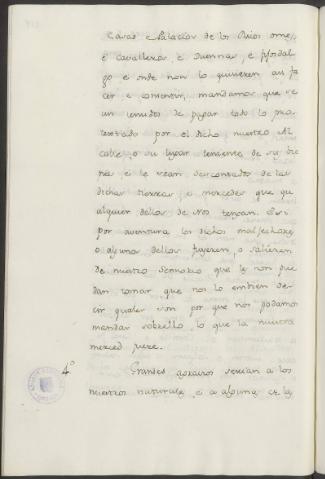 Casas e Palacios de los Ricos omes,
e Cavalleros, e Duennas, e fijosdal
go e onde non lo quisieren asi fa
cer e consentir, mandamos que se
an tenudos de pagar todo lo que
por el dicho nuestro Al
calle, o su lugar teniente de sus bie
nes, e le sean descontados de las
dichas tierras, e mercedes que qu
alquier dellos de Nos tengan. Et si
por aventura los dichos malfechores
o alguno dellos fuyeren, o salieren
de nuestro sennorio que le non pue
dan tomar que nos lo embien de
cir quales son por que nos podamos
mandar sobrello lo que la nuestra
merced fuere.
4.º Grandes agravios serian a los
nuestros naturales, e a algunos de los